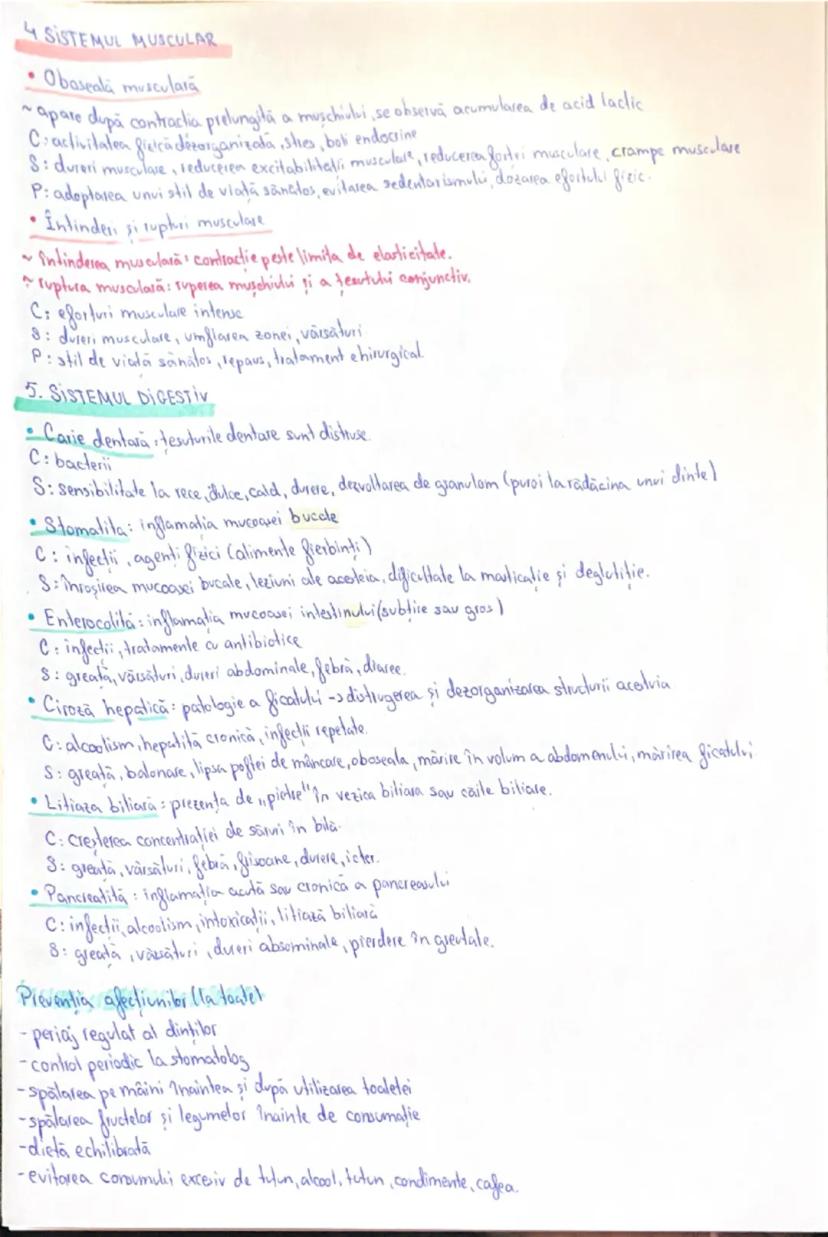 4 SISTEMUL MUSCULAR
• Oboseală musculară
~ apare după contracția prelungită a mușchiului, se observă acumularea de acid lactic
C: activitatea fizică dezorganizată, stres, boli endocrine
S: dureri musculare, reducerea excitabilității musculare, reducerea forței musculare, crampe musculare
P: adoptarea unui stil de viață sănătos, evitarea sedentarismului, dozarea efortului fizic.
• Întinderi și rupturi musculare
~ întinderea musculară: contracție peste limita de elasticitate.
~ ruptura musculară: ruperea mușchiului și a țesutului conjunctiv.
C: eforturi musculare intense
S: dureri musculare, umflarea zonei, vărsături
P: stil de viață sănătos, repaus, tratament chirurgical
5. SISTEMUL DIGESTIV
• Carie dentară: țesuturile dentare sunt distruse
C: bacterii
S: sensibilitate la rece, dulce, cald, durere, dezvoltarea de granulom (puroi la rădăcina unui dinte)
• Stomatita: inflamația mucoasei bucale
C: infecții, agenți fizici (alimente fierbinți)
S: înroșirea mucoasei bucale, leziuni ale acesteia, dificultate la masticație și deglutiție.
• Enterocolită: inflamația mucoasei intestinului (subțire sau gros)
C: infecții, tratamente cu antibiotice
S: greață, vărsături, dureri abdominale, febră, diaree.
• Ciroză hepatică: patologie a ficatului -> distrugerea și dezorganizarea structurii acestuia
C: alcoolism, hepatită cronică, infecții repetate.
S: greață, balonare, lipsa poftei de mâncare, oboseala, mărire în volum a abdomenului, mărirea ficatului
• Litiaza biliară: prezența de „pietre" în vezica biliara sau căile biliare.
C: creșterea concentrației de săruri în bilă.
S: greață, vărsături, febră, frisoane, durere, icter.
• Pancreatită: inflamația acută sau cronică a pancreasului
C: infecții, alcoolism, intoxicații, litiază biliară
S: greață, vărsături, dureri absominale, pierdere în greutate.
Prevenția afecțiunilor (la toate)
- periaj regulat al dinților
- control periodic la stomatolog
- spălarea pe mâini înaintea și după utilizarea toaletei
- spălarea fructelor și legumelor înainte de consumație
- dietă echilibrată
- evitarea consumului excesiv de tutun, alcool, tutun, condimente, cafea.